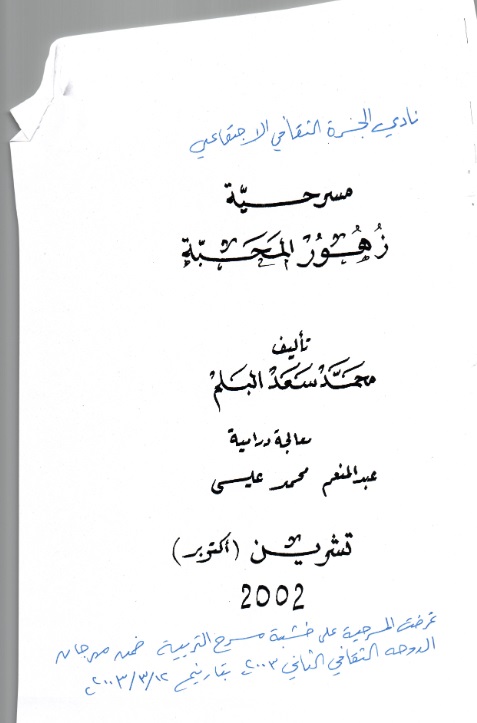 نادي الجسرة الثقافي الاجتماعي
مسرحيّة
زُهُورْ المَحَبّة
تأليف
محمّد سَعَد البلم
معالجة درامية
عبدالمنعم محمد عيسى
تشرين (أكتوبر)
2002
عرضت المسرحية على خشبة مسرح التربية ضمن مهرجان
الدوحة الثقافي الثاني ٢٠٠٣ بتاريخ ١٢/٣/٢٠٠٣